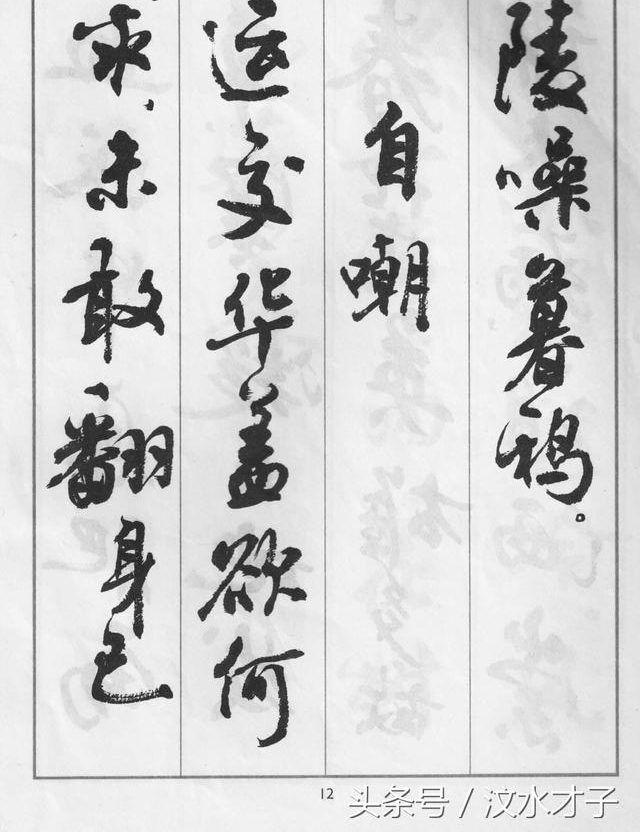 陵噪暮鸦。
自嘲
运交华盖欲何
求、未敢翻身已
12
头条号 / 汶水才子